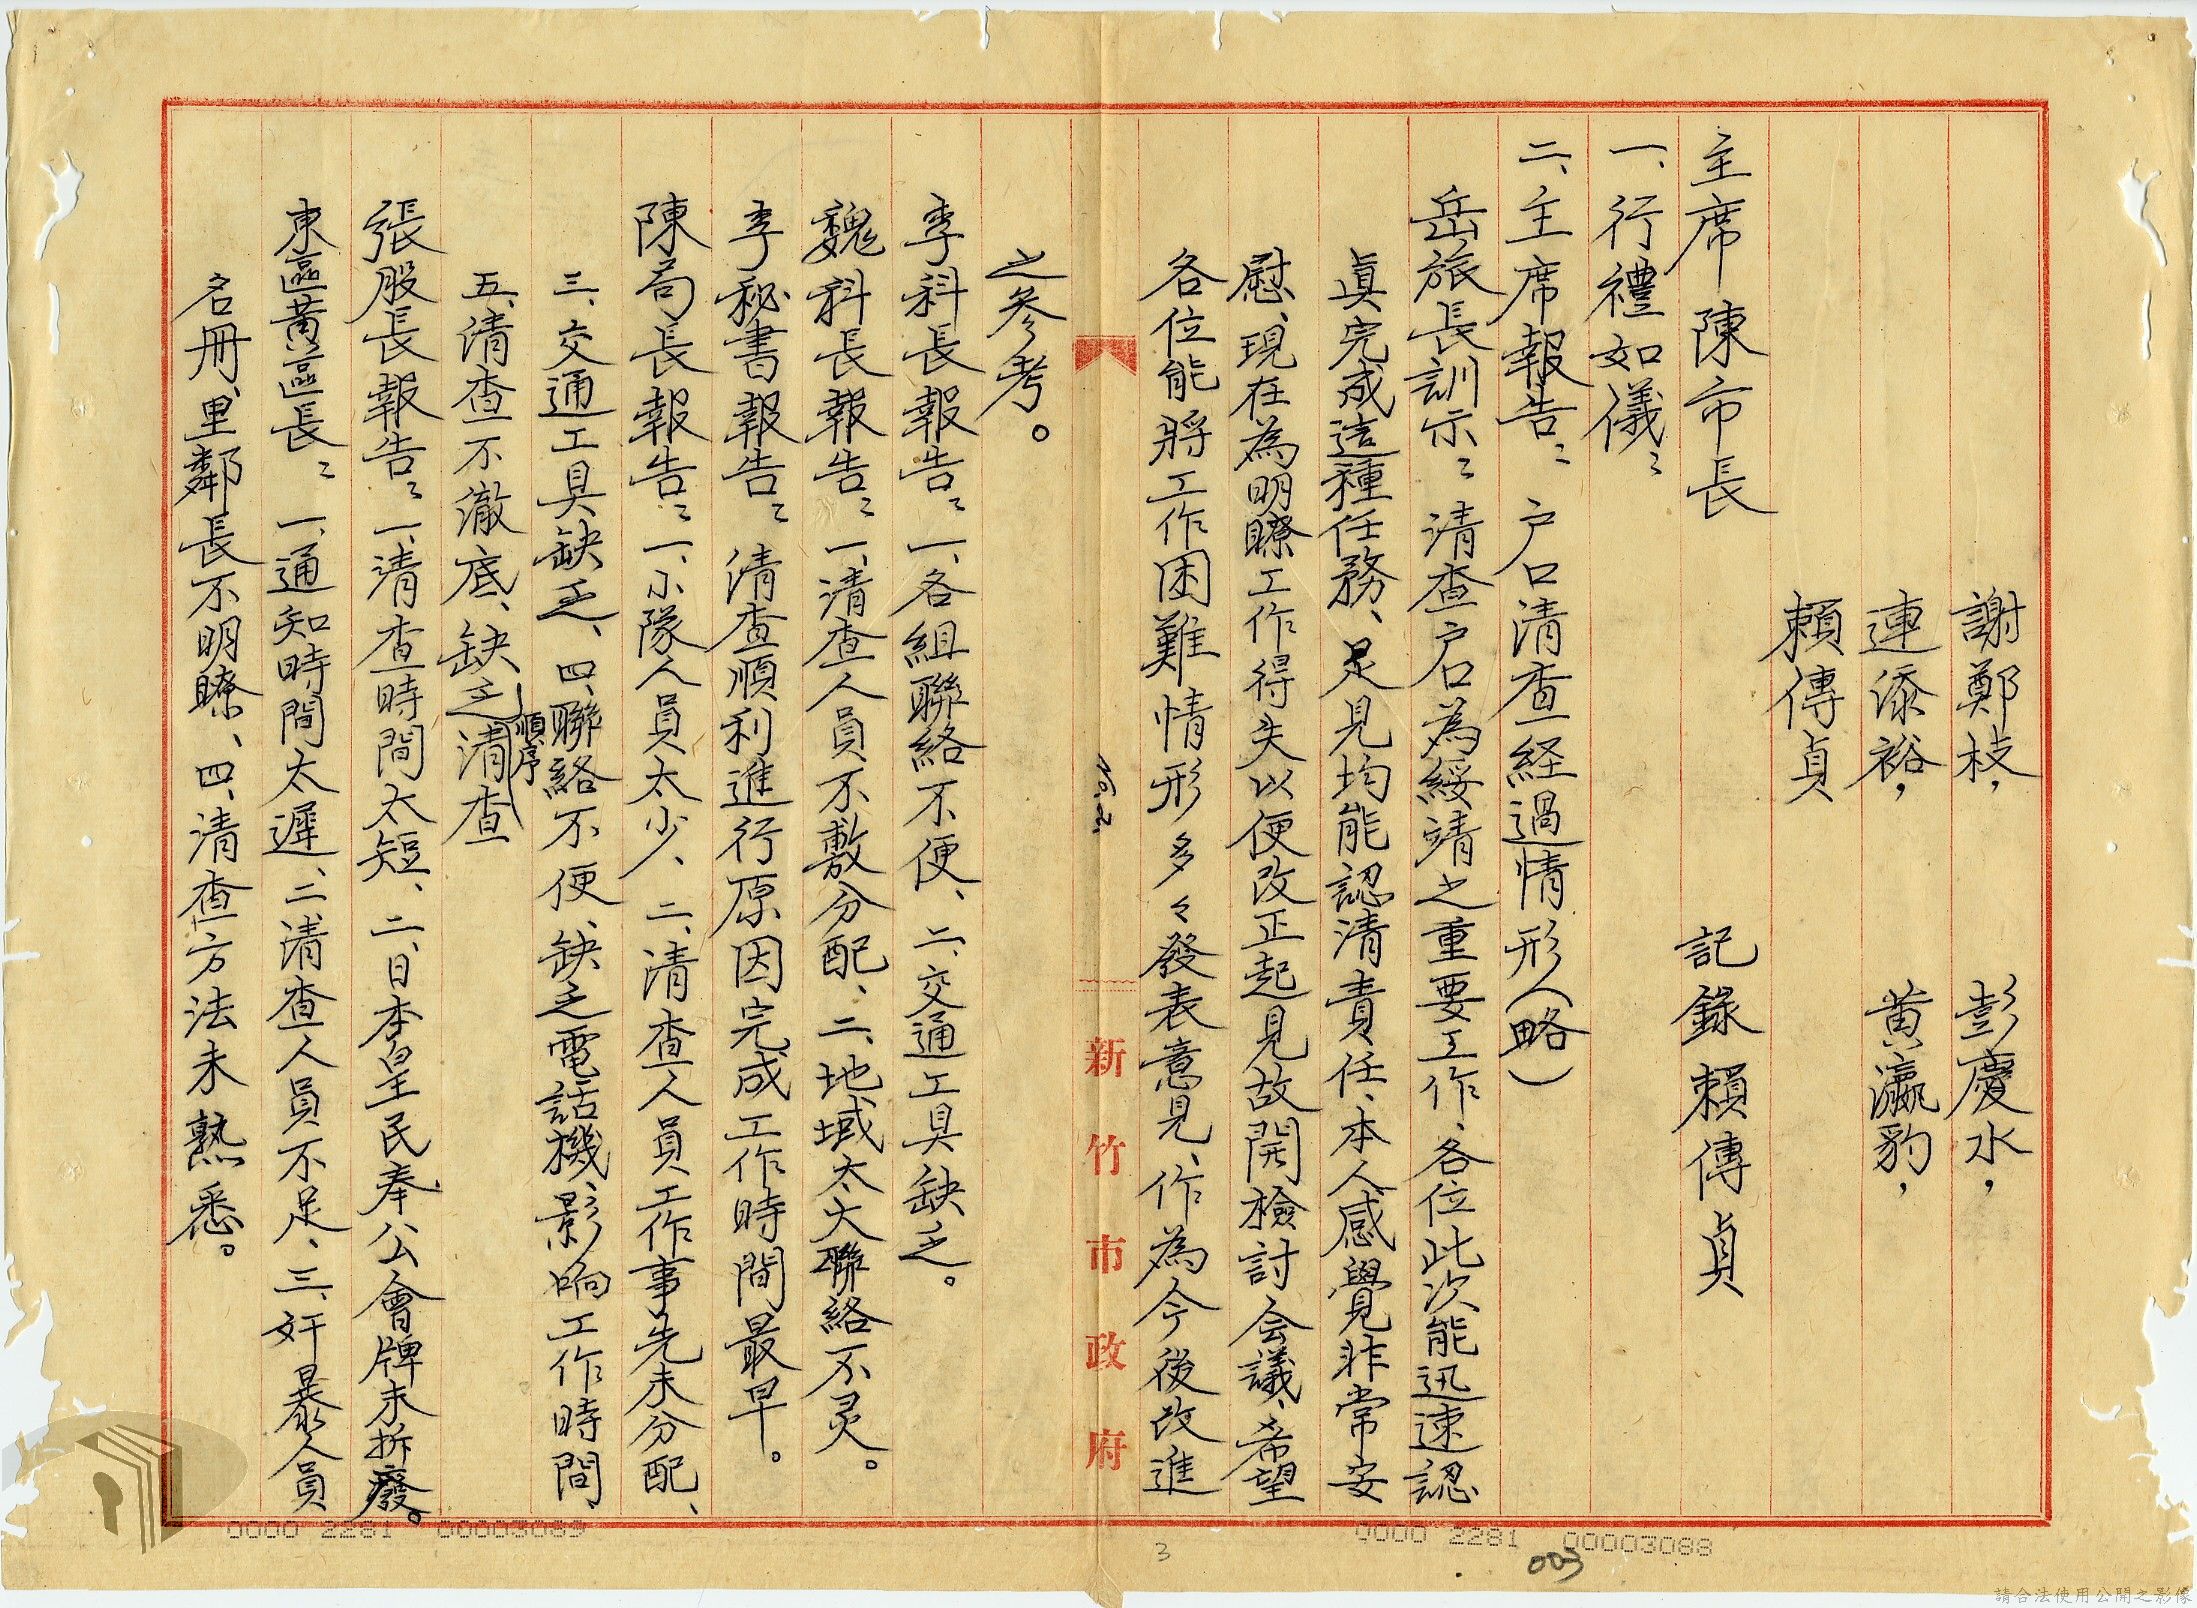 謝鄭枝，　彭慶水，
連添裕，　黃瀛豹，
賴傳貞
主席陳市長　記錄賴傳貞
一、行禮如儀：
二、主席報告：户口清查経過情形（略）
岳旅長訓示：清查户口為綏靖之重要工作、各位此次能迅速認
真完成這種任務、足見均能認清責任、本人感覺非常安
慰、現在為明瞭工作得失以便改正起見故開檢討会議、希望
各位能將工作困難情形多々發表意見、作為今後改進
No.2.
新竹市政府
之参考。
李科長報告：一、各組聯絡不便、二、交通工具缺乏。
魏科長報告：一、清查人員不敷分配、二、地域太大聯絡不灵。
李秘書報告：清查順利進行原因完成工作時間最早。
陳局長報告：一、小隊人員太少、二、清查人員工作事先未分配、
三、交通工具缺乏、四、聯絡不便、缺乏電話機、影响工作時間、
順序
五、清查不徹底、缺乏清查
張股長報告：一、清查時間太短、二、日本皇民奉公會牌未拆廢。
東區黃區長：一、通知時間太遲、二、清查人員不足、三、奸暴人員
名冊、里鄰長不明瞭、四、清查方法未熟悉。
0000 2281 00003088
0000 2281 00003089
003
3
請合法使用公開之影像